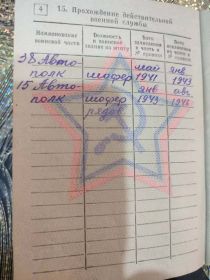 4
15. Прохождение действительной
военной службы
Наименование Должность Дата Дата
воинской части и воинское зачисления
звание по штату в часть и
38 Авто- май янв
полк шофер 1941 1943
15 Авто- янв авг
полк шофер 1943
рядов